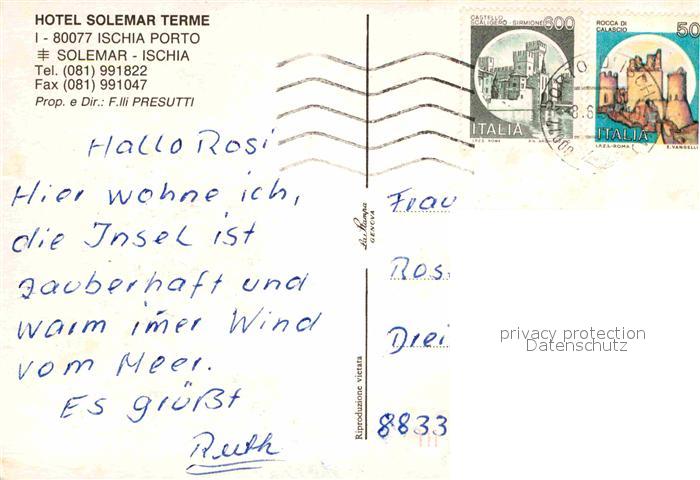 HOTEL SOLEMAR TERME
I - 80077 ISCHIA PORTO
SOLEMAR - ISCHIA
Tel. (081) 991822
Fax (081) 991047
Prop. e Dir.: F.lli PRESUTTI
CASTELLO SCALIGERO - SIRMIONE 600
ITALIA
I.P.Z.S. ROMA
ROCCA DI CALASCIO 50
ITALIA
I.P.Z.S. - ROMA
E. VANGELLI
Hallo Rosi
Hier wohne ich,
die Insel ist
zauberhaft und
warm imer Wind
vom Meer.
Es grüßt
Ruth
La Stampa
GENOVA
Riproduzione vietata
Frau
Ros
Drei
8833
privacy protection
Datenschutz